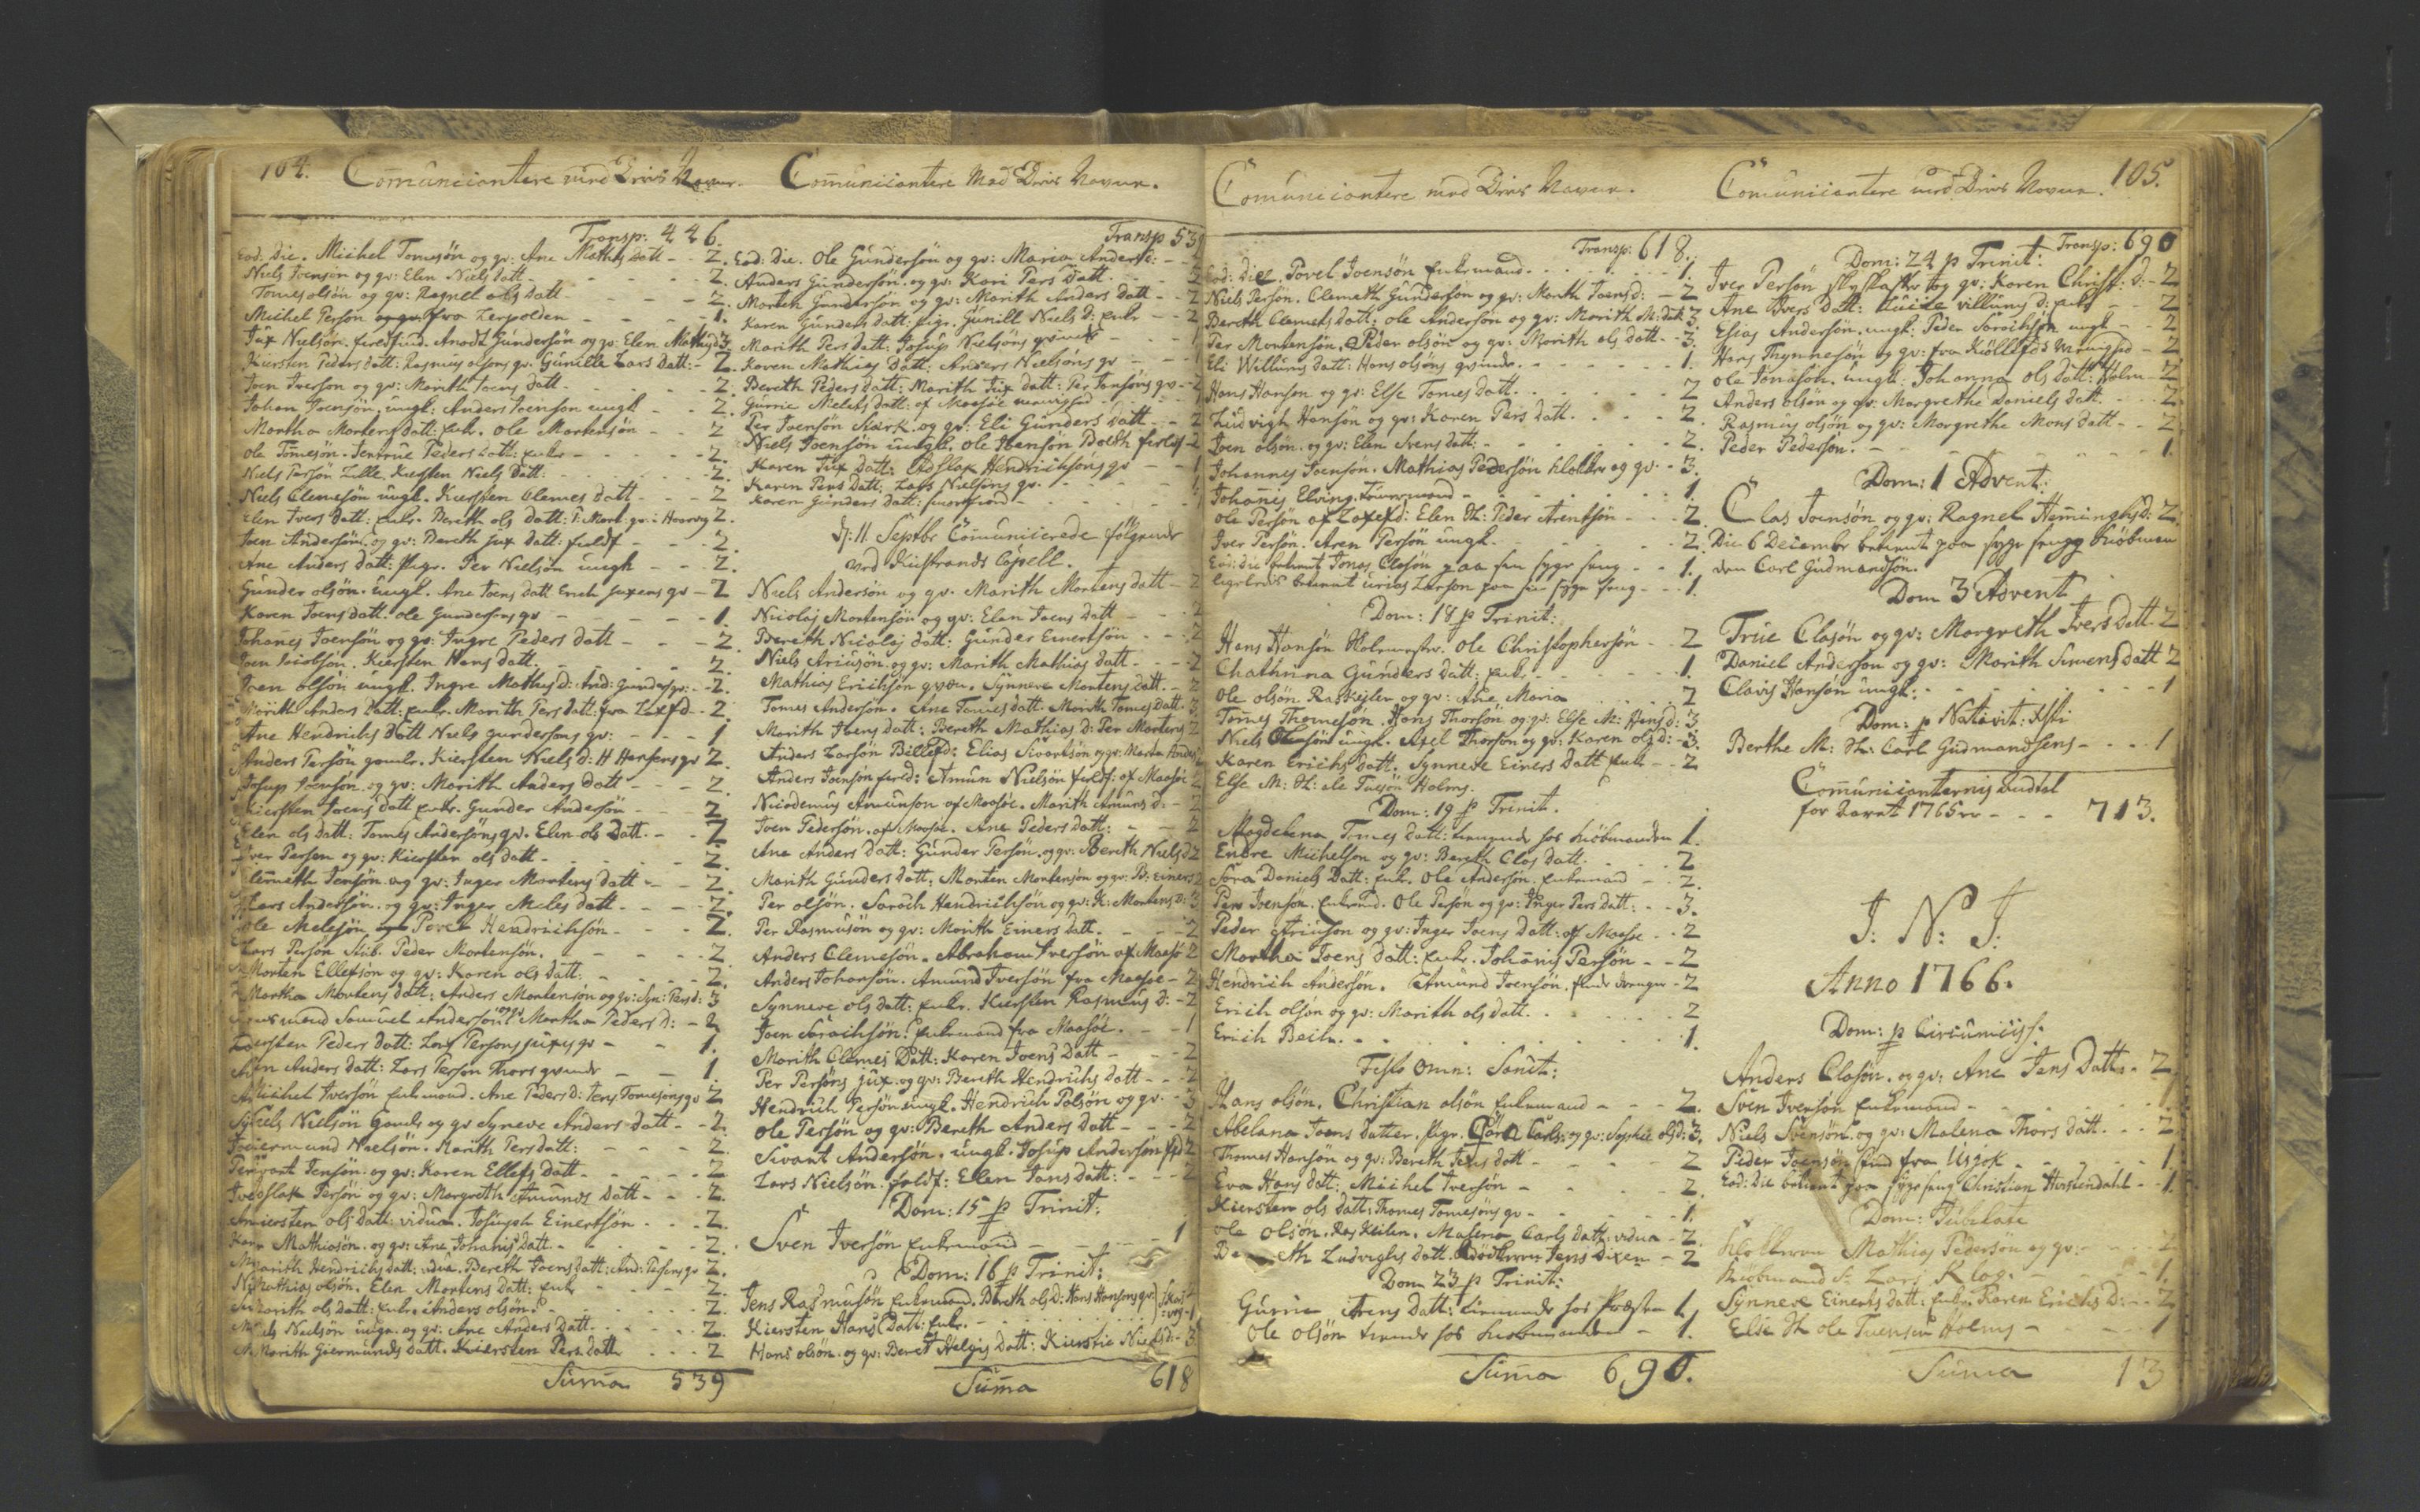 104.
Com̄unicantere med Dris Navne.
Transp: 446.
Eod: Die. Michel Tomesøn og qv: Ane Mathis Datt - - 2.
Niels Joensøn og qv: Elen Niels datt - - 2.
Tomes olsøn og qv: Ragnel ols datt - - - 2.
Michel Persøn fra Lerpolden - - - 1.
Jux Nielsøn. Arndt Gundersøn og qv: Elen Mathis d: 3.
Kiersten Peders datt: Rasmus olsøns qv. Gunille Lars Datt: - 2.
Joen Iversøn og qv: Marith Joens datt - - - 2.
Johan Joensøn, ungk: Anders Joensøn ungk - - 2.
Martha Mortens datt: enke. Ole Mortensøn - - 2
ole Tomesøn. Peders datt: enke - - - 2.
Niels Persøn Lille. Kiersten Niels Datt: - - - 2.
Niels Clemesøn ungk. Kiersten Clemes datt - - - 2
Elen Ivers datt: enke. Bereth ols datt: 2.
Joen Andersøn og qv: Bereth Jux datt: - - - 2.
Ane Anders datt: Pige. Per Nielsøn ungk - - 2.
Gunder olsøn. Ungk. Ane Joens datt Erich Juxens qv - 2
Karen Joens datt: ole Gundersøns qv - - - 1.
Johanes Joensøn og qv: Ingre Peders datt - - - 2.
Joen Jacobsøn. Kiersten Hans datt. - - - 2.
Joen olsøn ungk. Ingre Mathis d: And: Gunders qv: - 2.
Marith Anders datt: enke. Marith Pers datt: fra Laxefd - 2.
Ane Hendrichs datt Niels Gundersøns qv: - - - 1
Anders Persøn gamle. Kiersten Niels d: H Hansens qv 2.
Josup Joensøn og qv: Marith Anders datt - - - 2.
Kiersten Joens datt enke. Gunder Andersøn - - 2
Elen ols datt: Tomes Andersøns qv. Elen ols Datt. - - 2
Iver Persen og qv: Kiersten ols datt - - - 2.
Clemeth Jensøn og qv: Inger Mortens datt - - - 2.
Lars Andersøn. og qv: Inger Meles datt - - - 2.
ole Melesøn, Povel Hendrichsøn - - - 2.
Lars Persøn Peder Mortensøn. - - - 2
Morten Ellefsøn og qv: Karen ols datt: - - - 2.
Martha Mortens datt: Anders Mortensøn og qv: Syn: Pers d: 3
Samuel Andersøn og qv Martha Peders d: - 2
Kiersten Peders datt: Lars Persøns Juxes qv - - 1.
Anders datt: Lars Persøn Thors qvinde - - 1
Michel Iversøn Enkemand. Ane Peders d: Jens Tomesøns qv 2
Niels Nielsøn Gamle og qv Syneve Anders datt - - 2.
Nielsøn. Marith Pers datt: - - - 2
Jensøn og qv: Karen Ellefs datt - - - 2
Persøn og qv: Margreth Amunds datt - - - 2.
Kiersten ols datt: vidua. Joseph Einertsøn - - - 2.
Mathiasøn og qv: Ane Johanis datt. - - - 2.
Marith Hendrichs datt: vidua. Bereth Joens datt: And: Persøns qv 2.
Mathias olsøn. Elen Mortens datt: enke - - - 2.
Marith ols datt: enke. Anders olsøn. - - - 2.
Niels Nielsøn unge og qv: Ane Anders Datt. - - - 2.
Marith Giermunds datt. Kiersten Pers datt - - - 2
Sum̄a 539
Com̄unicantere Med Dris Navne.
Transp 539
Eod: Die. Ole Gundersøn og qv: Maria Anders d: - - 2
Anders Gundersøn. og qv: Kari Pers Datt - - 2
Morten Gundersøn og qv: Marith Anders datt - - 2
Karen Gunders datt: pige. Gunill Niels d: enke - - 2
Marith Pers datt: Josup Nielsøns qvinde - - 1
Karen Mathias Datt: Anders Nielsøns qv - - 1
Bereth Peders datt: Marith Jux datt: Per Jonsøns qv - 2
Gurrie Melets datt: af Maasøe menighed - - - 1
Per Joensøn Stark og qv: Eli Gunders datt - - 2
Niels Joensøn ungk. Ole Hansøn - 2
Karen Jux Datt: Hendrichsøns qv - - 1
Karen Pers Datt: Lars Nielsøns qv. - - - 1
Karen Gunders datt: - - - 1
D: 11 Septbr Com̄unicerede følgende
ved Kistrands Capell.
Niels Andersøn og qv. Marith Mortens datt - 2
Nicolaj Mortensøn og qv: Elen Joens Datt - - 2
Bereth Nicolaj datt: Gunder Einertsøn - - - 2
Niels Ariusøn og qv: Marith Mathias datt - - - 2
Mathias Erichsøn Synneve Mortens datt. - - 2
Tomes Andersøn. Ane Tomes datt. Marith Tomes datt. - 3
Marith Ivers datt: Bereth Mathias d: Per Mortens 2
Anders Larsøn Billefd: Elias Sivartsøn og qv: Marthe Anders
Anders Joensøn Amun Nielsøn af Maasøe 2
Nicodemus Amunsøn af Maasøe. Marith Amuns d: - 2
Joen Pedersøn. af Maasøe. Ane Peders datt: - - 2
Ane Anders datt: Gunder Persøn og qv: Bereth Niels d 2
Marith Gunders datt. Morten Mortensøn og qv: B: Einers 2
Per olsøn. Sarach Hendrichsøn og qv: K: Mortens d: 3
Per Rasmusøn og qv: Marith Einers datt. - - - 2
Anders Clemesøn. Abraham Iversøn af Maasø 2
Anders Johansøn. Amund Iversøn fra Maasøe - 2
Synneve ols datt: enke. Kiersten Rasmus d: - 2
Joen Sarachsøn. Enkemand fra Maasøe. - - 1
Marith Clemes Datt: Karen Joens Datt - - - 2
Per Persøns Jux og qv: Bereth Hendrichs datt - - 2
Hendrich Persøn ungk. Hendrich Polsøn og qv. - 3
ole Persøn og qv: Bereth Anders Datt - - - 2
Sivart Andersøn. ungk. Josup Andersøn 2
Lars Nielsøn. Elen Jons datt: - - - 2
Dom: 15 p Trinit:
Sven Iversøn Enkemand - - - 1
Dom: 16 p Trinit:
Jens Rasmusøn Enkemand. Bereth ols d: Hans Hansøns qv:
Kiersten Hans Datt: enke. - - - 1
Hans olsøn og qv: Beret Helgis Datt: Kierstie Niels d: - 3
Sum̄a 618
Com̄unicantere med Dris Navne.
Transp: 618.
Eod: Die Povel Joensøn Enkemand. - - - 1.
Niels Persøn. Clemeth Gundersøn og qv: Marth Joens d: - 2
Bereth Clemets datt: ole Andersøn og qv: Marith M: datt 3
Per Mortensøn. Peder olsøn og qv: Marith ols datt - - 3.
Eli Willums datt: Hans olsøns qvinde. - - - 1.
Hans Hansøn og qv: Else Tomes datt. - - - 2
Ludvigh Hansøn og qv: Karen Pers datt - - - 2.
Joen olsøn og qv: Elen Svens datt: - - - 2.
Johannes Joensøn. Mathias Pedersøn klokker og qv. - 3.
Johanes Elving. Tømermand - - - 1.
ole Persøn af Laxefd: Elen H: Peder Arentsøn - - - 2.
Iver Persøn. Aren Persøn ungk. - - - 2.
Eod: die betient Jonas Clasøn paa sin syge seng - - 1.
ligeledes betient urias Larsøn paa sin syge seng - - - 1.
Dom: 18 p Trinit:
Hans Hansøn Holmester. ole Christophersøn - - 2
Chathrina Gunders datt: enke - - - 1.
ole olsøn Raskeilen og qv: Ane Maria - - - 2
Tomes Thomesøn. Hans Thorsøn og qv: Else M: Hans d: 3
Niels olsøn ungk. Axel Thorsøn og qv: Karen ols d: - 3.
Karen Erichs datt. Synneve Einers datt enke - - 2
Else M: H: ole Tuesøn Holms.
Dom: 19 p Trinit.
Magdelena Tomes datt: tienende hos kiøbmanden 1.
Endre Michelsøn og qv: Bereth Clas datt. - - - 2
Sara Daniels Datt: enk. Ole Andersøn. Enkemand - - 2.
Pers Joensøn. Enkemd. Ole Persøn og qv: Inger Pers datt: - - 3.
Peder Ariusøn og qv: Inger Joens datt: af Maasøe - - 2
Martha Joens datt: enke. Johanis Persøn - - 2
Hendrich Andersøn. Amund Joensøn. - 2
Erich olsøn og qv: Marith ols datt. - - - 2
Erich Bech. - - - 1.
Festo Omn: Sanct:
Hans olsøn. Christian olsøn Enkemand - - - 2.
Abelana Joens datter. pige. Carls: og qv: Sophie ols d: 3.
Thomes Hansøn og qv: Bereth Jens datt - - - 2
Eva Hans datt: Michel Iversøn - - - 2.
Kiersten ols datt: Thomes Tomesøns qv - - - 1.
ole olsøn. Raskeilen. Malena Carls datt: vidua - 2.
Ludvighs datt. Jens Dixen - - 2
Dom 23 p Trinit:
Gurrie Arens datt: tienende hos Præsten 1.
ole olsøn tiende hos kiøbmanden - 1.
Sum̄a 690.
Com̄unicantere med Dris Navne.
105.
Transp: 690
Dom: 24 p Trinit:
Iver Persøn og qv: Karen Christ: d: - 2
Ane Ivers datt: Lucie villums d: enke - - 2
Esias Andersøn. ungk: Peder Sarachsøn ungk - - 2
Hans Thynnesøn og qv: fra Kiøllefds Menighed - 2
ole Jonasøn. ungk: Johanna ols datt: Holm - 2
Anders olsøn og qv: Margrethe Daniels datt. - - 2.
Rasmus olsøn og qv: Margrethe Mons datt - - 2
Peder Pedersøn. - - - 1.
Dom: 1 Advent:
Clas Joensøn og qv: Ragnel Hem̄inghs d: 2
Die 6 Decembr betient paa syge seng kiøbman
den Carl Gudmandsøn.
Dom 3 Advent
True Clasøn og qv: Margreth Ivers datt. 2
Daniel Andersøn og qv: Marith Simens datt 2
Clavis Hansøn ungk: - - - 1
Dom: p Nativit: Xsti
Berthe M: H: Carl Gudmandsens - - - 1
Com̄unicanternis Andtal
for Aaret 1765 er - - - 713.
J. N. J.
Anno 1766.
Dom: p Circumcis:
Anders Clasøn. og qv: Ane Jens Datt. - 2
Sven Iversøn Enkemand - - - 1
Niels Svensøn og qv: Malena Thors datt. - - 2
Peder Joensøn find fra Usgok - - - 1.
Eod: Die betient paa syge seng Christian Hestendahl - - 1.
Dom: Jubilate
Klokkeren Mathias Pedersøn og qv: - - - 2
Kiøbmand Sr Lars Klog. - - - 1.
Synneve Einerts datt: enke. Karen Erichs D: - - 2
Else H ole Tuesøn Holms - - - 1
Sum̄a 13